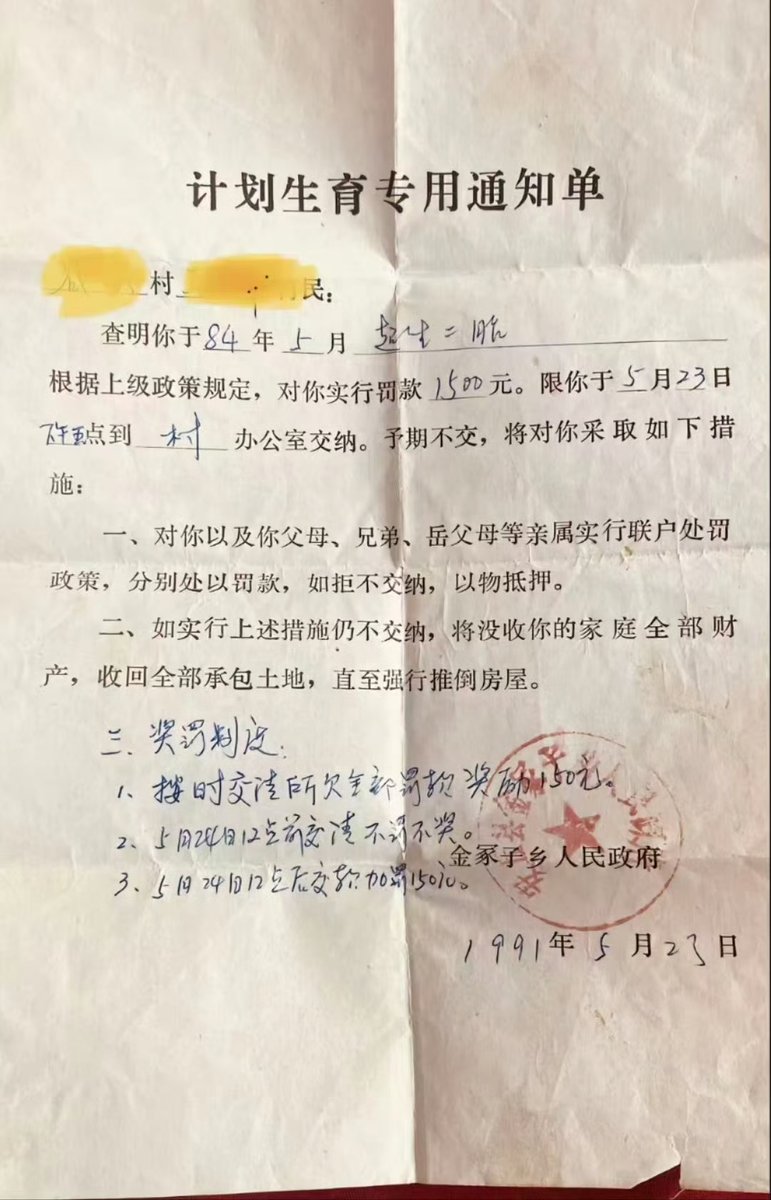 计划生育专用通知单
村
民：
查明你于84年5月超生二胎
根据上级政策规定，对你实行罚款1500元。限你于5月23日
下午五点到村办公室交纳。予期不交，将对你采取如下措
施：
一、对你以及你父母、兄弟、岳父母等亲属实行联户处罚
政策，分别处以罚款，如拒不交纳，以物抵押。
二、如实行上述措施仍不交纳，将没收你的家庭全部财
产，收回全部承包土地，直至强行推倒房屋。
三、奖罚制度：
1、按时交清所欠全部罚款奖励150元。
2、5月24日12点前交清不罚不奖。
金冢子乡人民政府
3、5月24日12点后交款加罚150元。
1991年5月23日